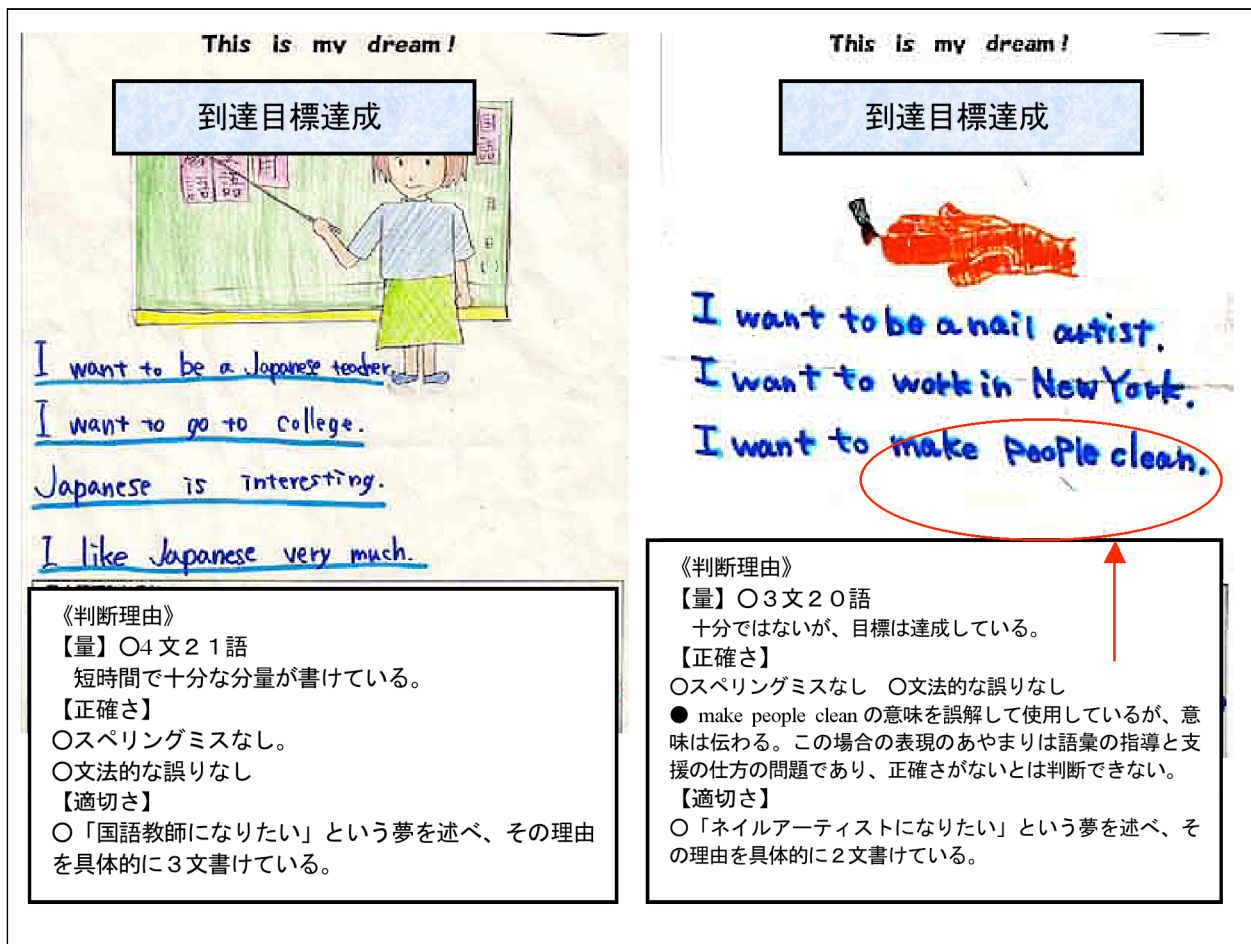 This is my dream!
到達目標達成
I want to be a Japanese teacher.
I want to go to college.
Japanese is interesting.
I like Japanese very much.
《判断理由》
【量】○4文21語
短時間で十分な分量が書けている。
【正確さ】
○スペリングミスなし。
○文法的な誤りなし
【適切さ】
○「国語教師になりたい」という夢を述べ、その理由
を具体的に3文書けている。
This is my dream!
到達目標達成
I want to be a nail artist.
I want to work in New York.
I want to make people clean.
《判断理由》
【量】○3文20語
十分ではないが、目標は達成している。
【正確さ】
○スペリングミスなし ○文法的な誤りなし
● make people clean の意味を誤解して使用しているが、意
味は伝わる。この場合の表現のあやまりは語彙の指導と支
援の仕方の問題であり、正確さがないとは判断できない。
【適切さ】
○「ネイルアーティストになりたい」という夢を述べ、そ
の理由を具体的に2文書けている。